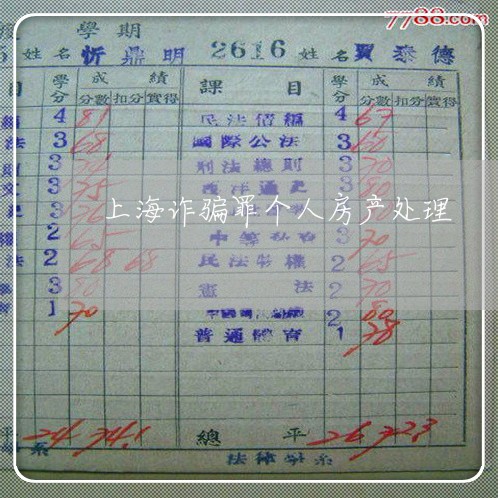 7788.com
學期
姓名 忻鼎明 2616 姓名 賈泰德
目 學分 成績 課目 學分 成績
分數 扣分 實得 分數 扣分 實得
4 81 民法債編 4 67
法 3 68 國際公法 3 60
3 刑法總則 3 70
3 75 西洋通史 3 70
上海诈骗罪个人房产处理
2 65 3 70
法 2 68 68 民法物權 2 65
3 80 憲法 2 70
1 70 2 80
普通體育 1 78
平 24 74.1 總平 26 72.3
系 法律學系